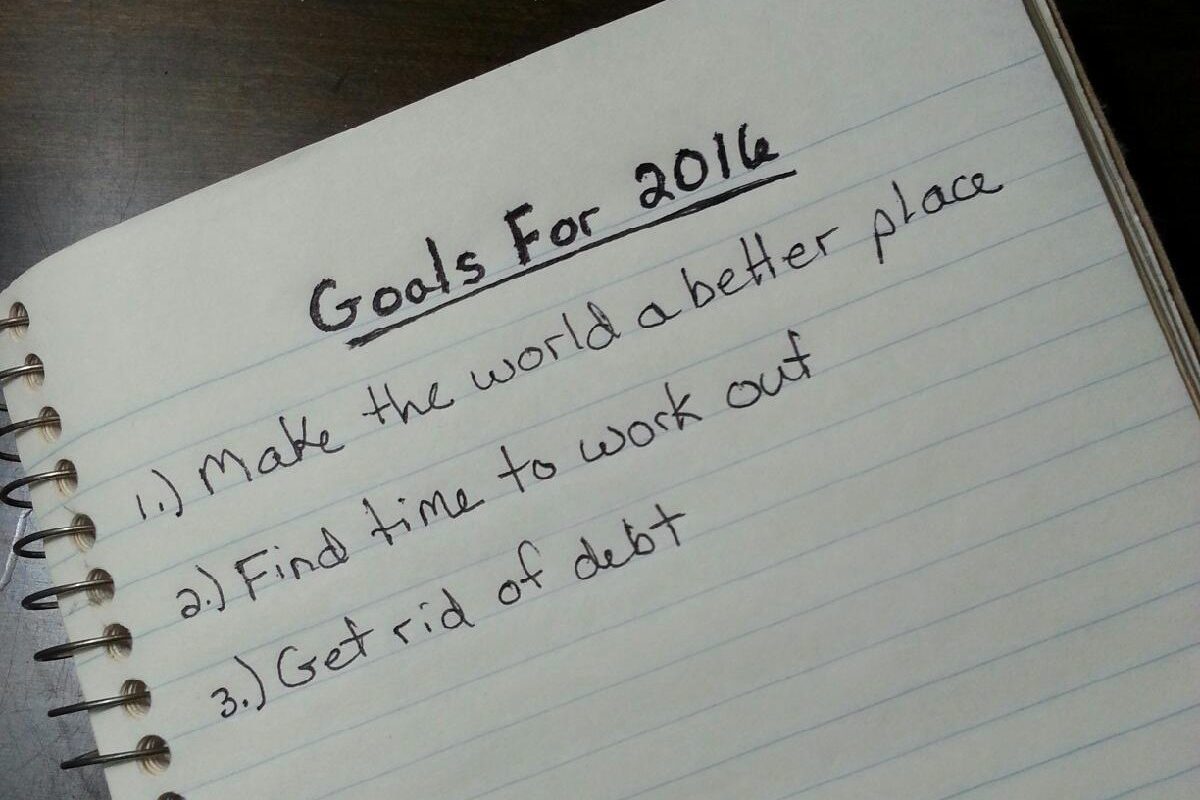 Goals For 2016
1.) Make the world a better place
2.) Find time to work out
3.) Get rid of debt